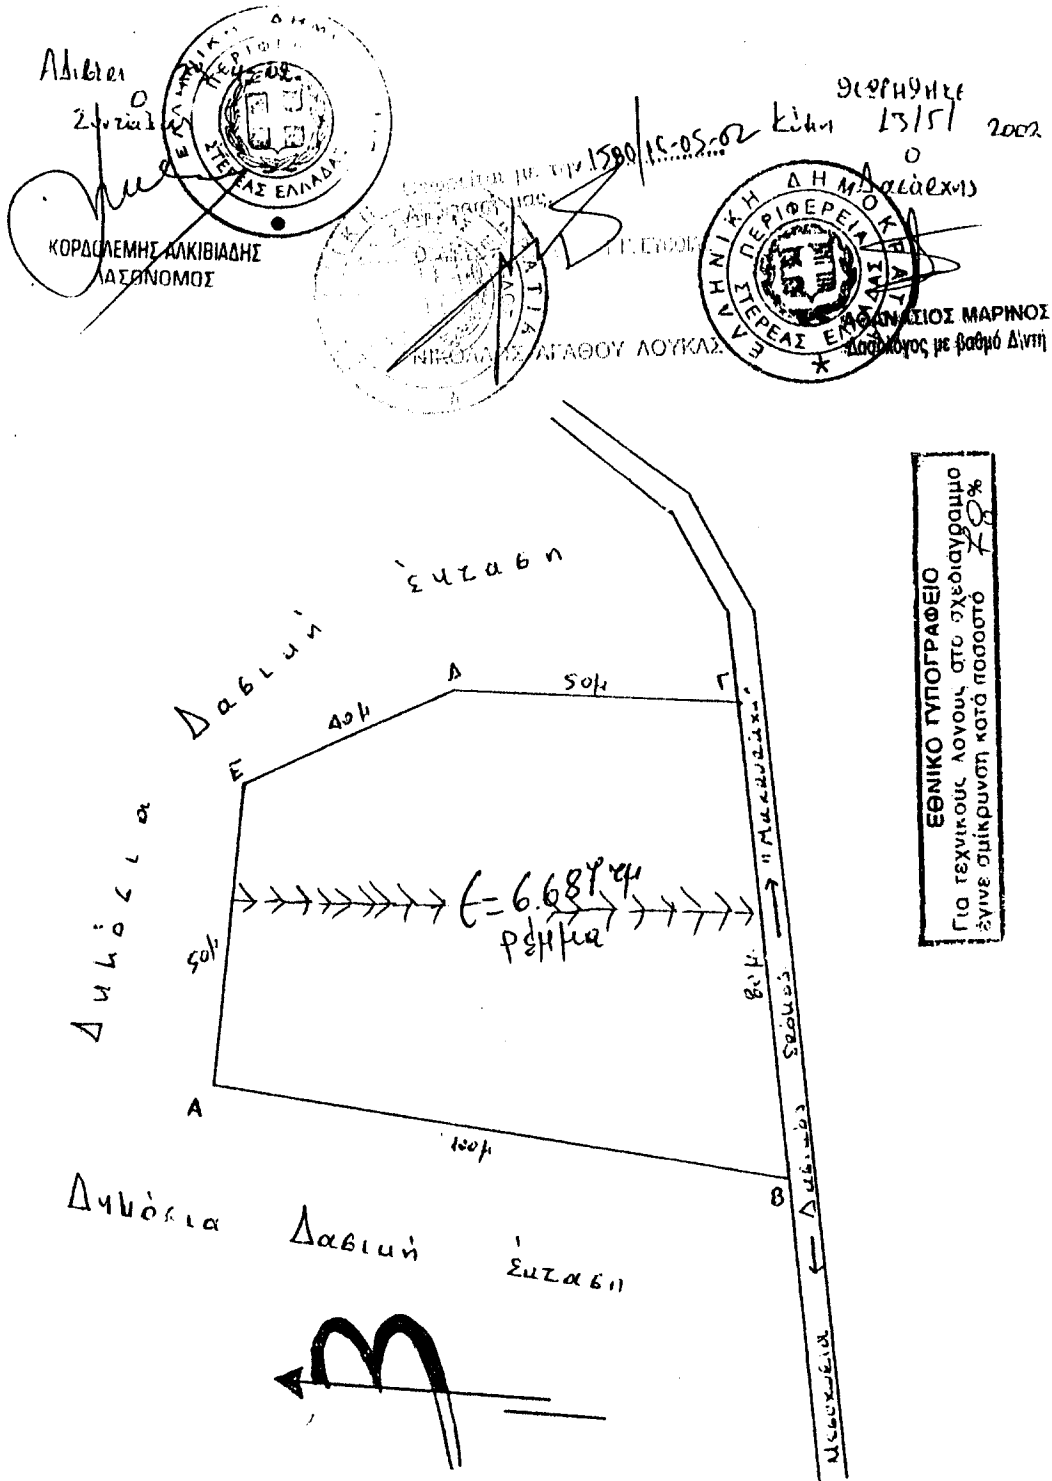 ΚΟΡΔΟΛΕΜΗΣ ΑΛΚΙΒΙΑΔΗΣ
ΔΑΣΟΝΟΜΟΣ
ΣΤΕΡΕΑΣ ΕΛΛΑΔΑΣ
1580/15-05-02
ΝΙΚΟΛΑΟΣ ΑΓΑΘΟΥ ΛΟΥΚΑΣ
Θεωρήθηκε
Κύμη 13/5/ 2002
Ο
Δασάρχης
ΕΛΛΗΝΙΚΗ ΔΗΜΟΚΡΑΤΙΑ
ΠΕΡΙΦΕΡΕΙΑ
ΣΤΕΡΕΑΣ ΕΛΛΑΔΑΣ
ΑΘΑΝΑΣΙΟΣ ΜΑΡΙΝΟΣ
Δασολόγος με βαθμό Δ\ντή
ΕΘΝΙΚΟ ΤΥΠΟΓΡΑΦΕΙΟ
Για τεχνικούς λόγους στο σχεδιάγραμμα
έγινε σμίκρυνση κατά ποσοστό 20%
Δημόσια Δασική έκταση
Δ
50μ
Γ
40μ
Ε
50μ
Ε=6.687 τμ
ρέμμα
80μ
Α
100μ
Β
Δασικός δρόμος
Δημόσια Δασική έκταση